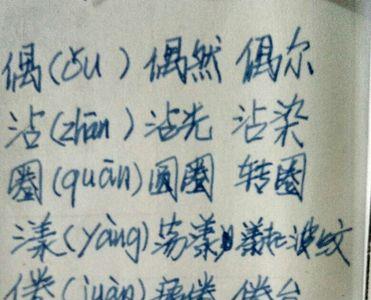 偶(ǒu) 偶然 偶尔
沾(zhān)沾光 沾染
圈(quān)圆圈 转圈
漾(yàng)荡漾 漾起波纹
倦(juàn)疲倦 倦